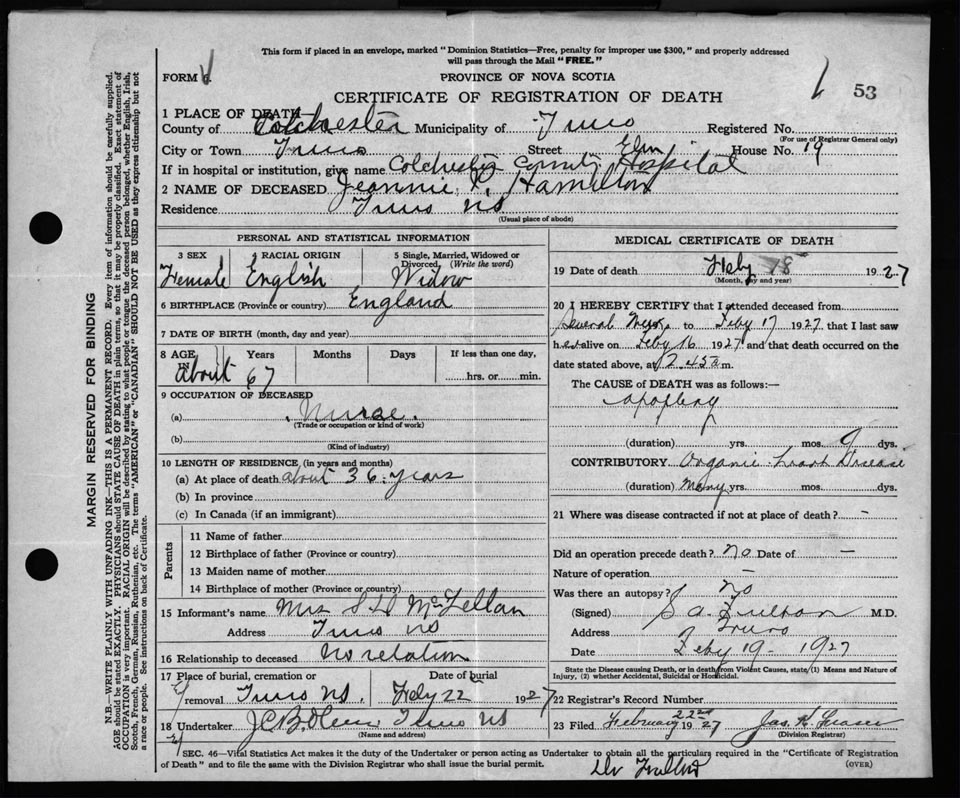 This form if placed in an envelope, marked "Dominion Statistics—Free, penalty for improper use $300," and properly addressed
will pass through the Mail "FREE."
FORM 6.
PROVINCE OF NOVA SCOTIA
53
CERTIFICATE OF REGISTRATION OF DEATH
1 PLACE OF DEATH—
County of Colchester Municipality of Truro Registered No.
(For use of Registrar General only)
City or Town Truro Street Elm House No. 19
If in hospital or institution, give name Colchester County Hospital
2 NAME OF DECEASED Jeannie P. Hamilton
Residence Truro NS
(Usual place of abode)
PERSONAL AND STATISTICAL INFORMATION
3 SEX Female
4 RACIAL ORIGIN English
5 Single, Married, Widowed or Divorced, (Write the word) Widow
6 BIRTHPLACE (Province or country) England
7 DATE OF BIRTH (month, day and year)
8 AGE IN Years Months Days If less than one day,
About 67 hrs. or min.
9 OCCUPATION OF DECEASED
(a) Nurse
(Trade or occupation or kind of work)
(b)
(Kind of industry)
10 LENGTH OF RESIDENCE (in years and months)
(a) At place of death about 36 years
(b) In province
(c) In Canada (if an immigrant)
Parents
11 Name of father
12 Birthplace of father (Province or country)
13 Maiden name of mother
14 Birthplace of mother (Province or country)
15 Informant's name Mrs S D McLellan
Address Truro NS
16 Relationship to deceased No relation
17 Place of burial, cremation or removal Truro NS. Date of burial Feby 22 1927
18 Undertaker Truro NS
(Name and address)
MEDICAL CERTIFICATE OF DEATH
19 Date of death Feby 18 1927
(Month, day and year)
20 I HEREBY CERTIFY that I attended deceased from
Several to Feby 17 1927 that I last saw
her alive on Feby 16 1927 and that death occurred on the
date stated above, at 2.45 a m.
The CAUSE OF DEATH was as follows:—
apoplexy
(duration) yrs. mos. 9 dys.
CONTRIBUTORY Organic heart Disease
(duration) Many yrs. mos. dys.
21 Where was disease contracted if not at place of death? -
Did an operation precede death? No Date of —
Nature of operation —
Was there an autopsy? No
(Signed) S a Fulton M.D.
Address Truro
Date Feby 19 - 1927
State the Disease causing Death, or in death from Violent Causes, state (1) Means and Nature of
Injury, (2) whether Accidental, Suicidal or Homicidal.
22 Registrar's Record Number
23 Filed February 22nd 1927 Jas. K. Fraser
(Division Registrar)
SEC. 46—Vital Statistics Act makes it the duty of the Undertaker or person acting as Undertaker to obtain all the particulars required in the "Certificate of Registration
of Death" and to file the same with the Division Registrar who shall issue the burial permit. (OVER)
Dr
MARGIN RESERVED FOR BINDING
N.B.—WRITE PLAINLY WITH UNFADING INK—THIS IS A PERMANENT RECORD. Every item of information should be carefully supplied.
AGE should be stated EXACTLY. PHYSICIANS should STATE CAUSE OF DEATH in plain terms, so that it may be properly classified. Exact statement of
OCCUPATION is very important. RACIAL ORIGIN will be described by stating to what people or tongue the deceased person belonged, whether English, Irish,
Scotch, French, German, Russian, Ruthenian, etc. The terms "AMERICAN" or "CANADIAN" SHOULD NOT BE USED as they express citizenship but not
a race or people. See instructions on back of Certificate.